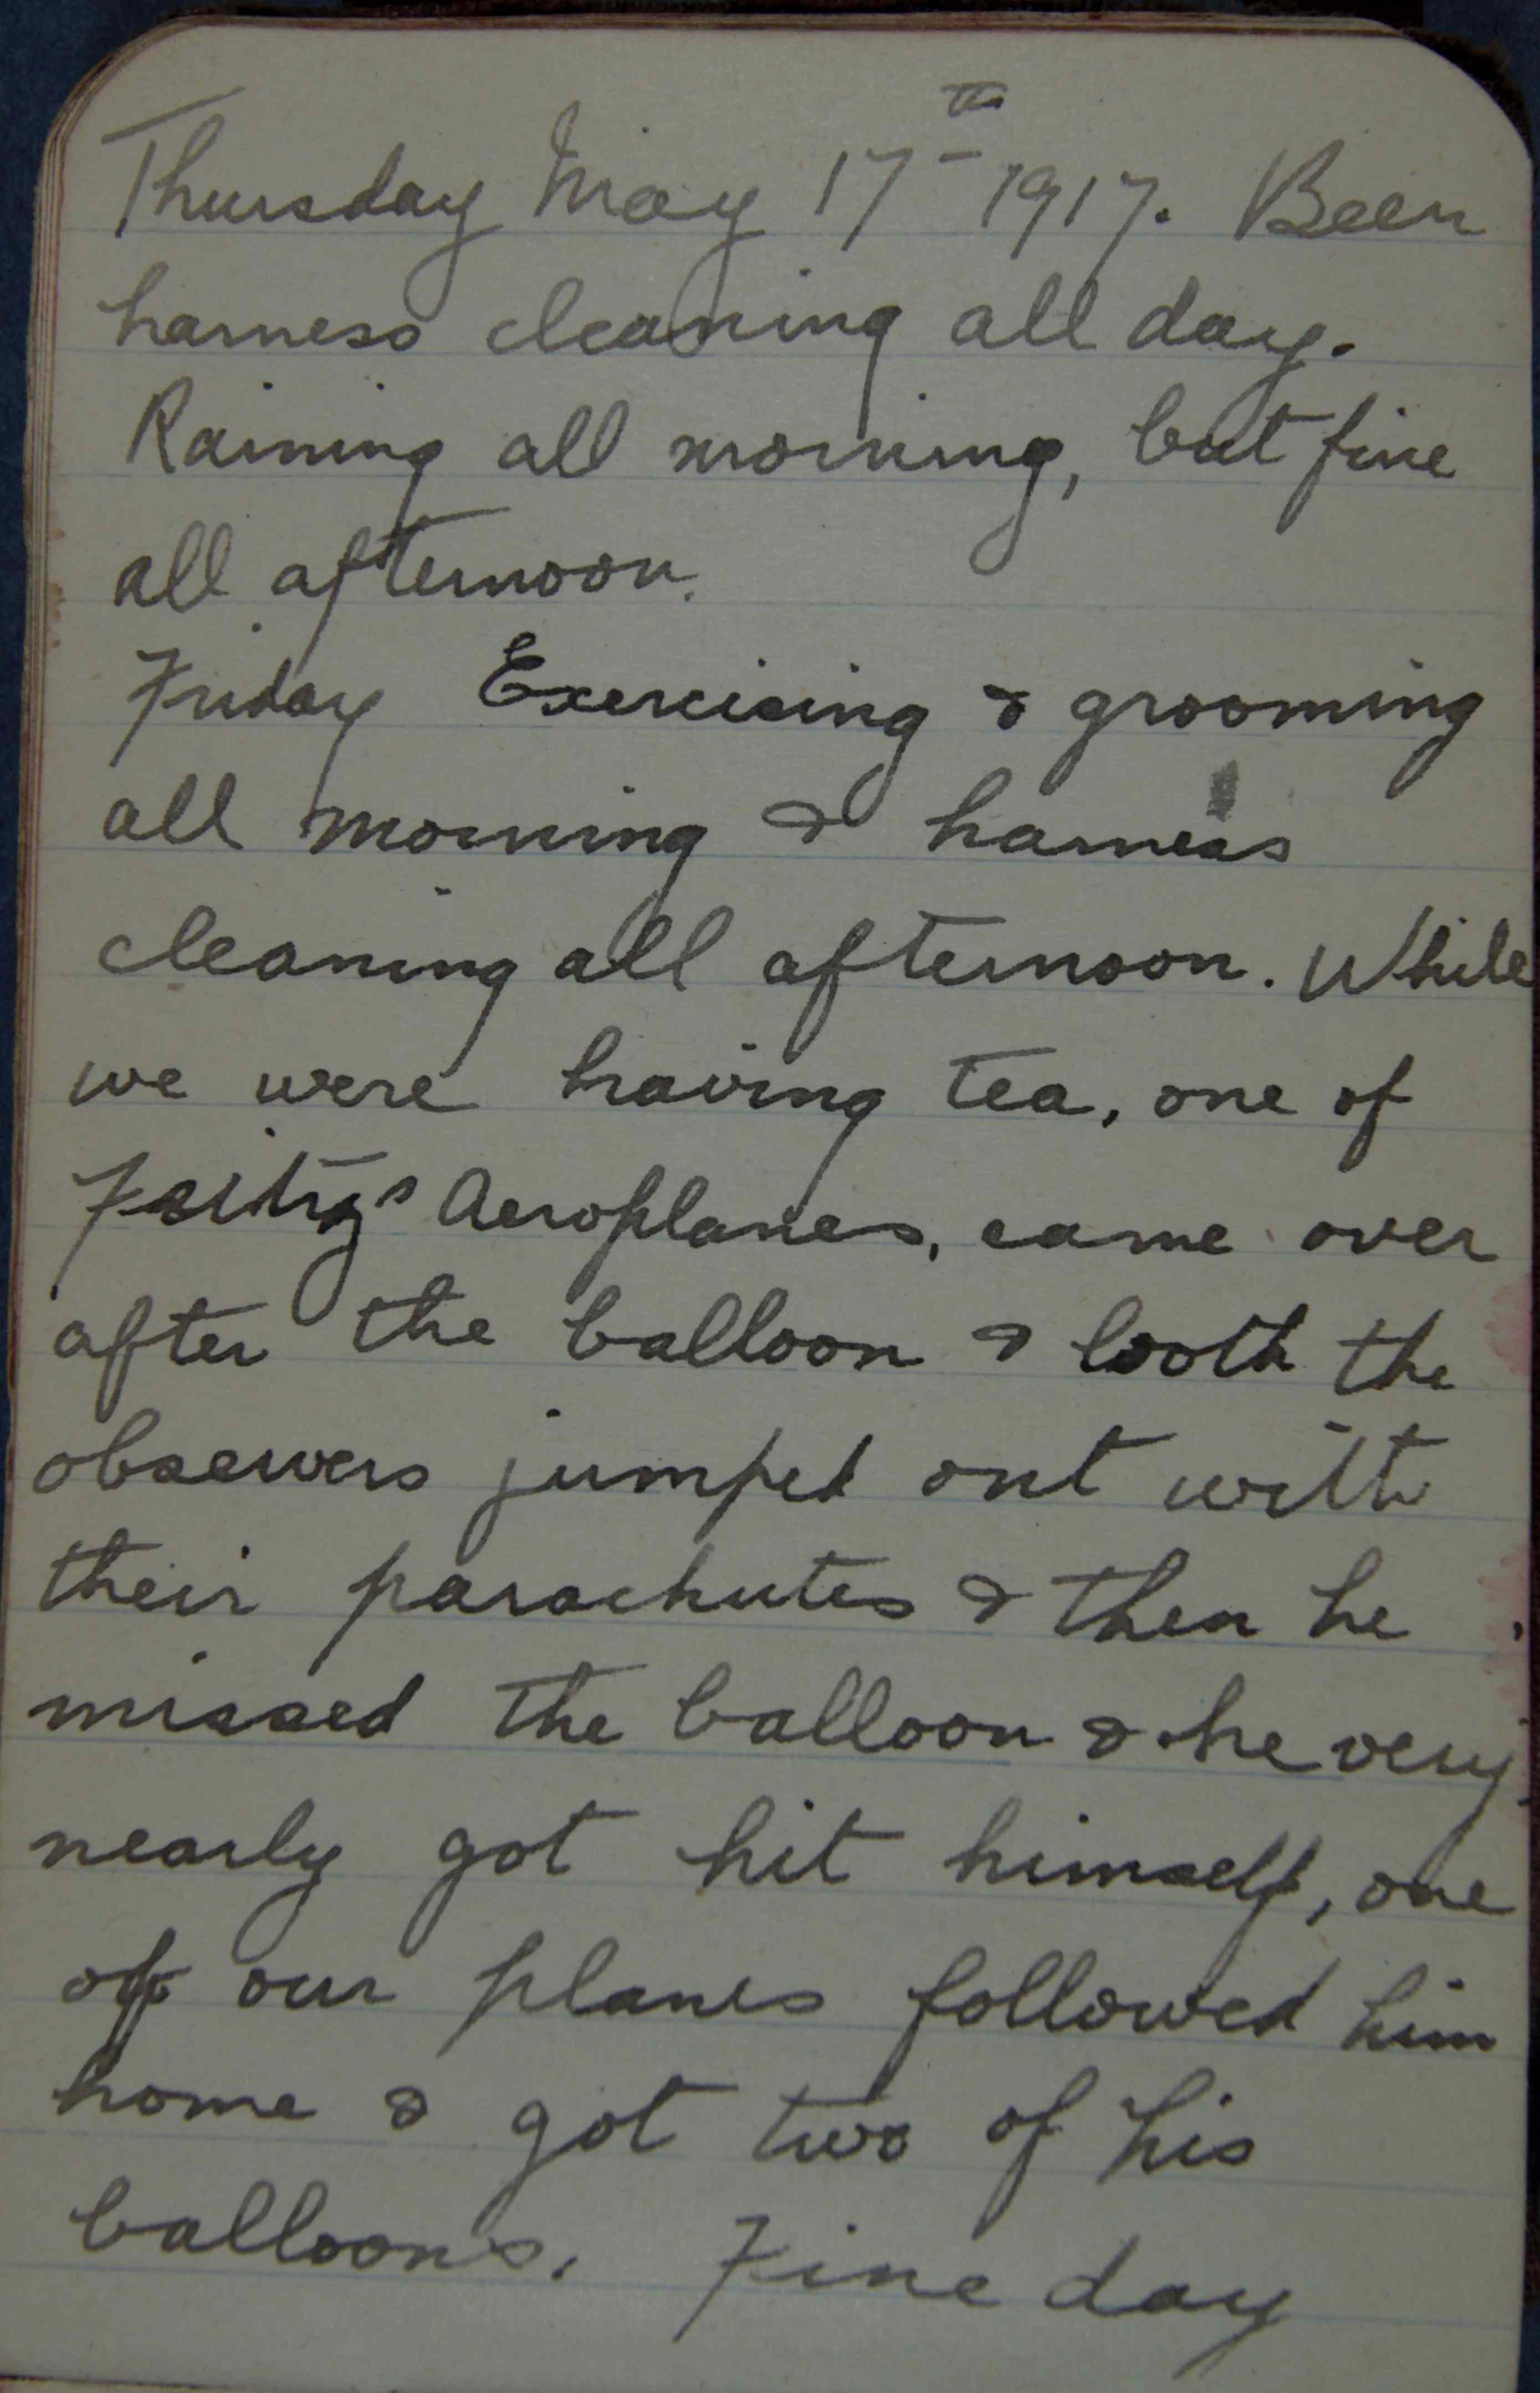 Thursday May 17th 1917. Been
harness cleaning all day.
Raining all morning, but fine
all afternoon.
Friday Exercising & grooming
all morning & harness
cleaning all afternoon. While
we were having tea, one of
Fritz's Aeroplanes, came over
after the balloon & both the
observers jumped out with
their parachutes & then he
missed the balloon & he very
nearly got hit himself, one
of our planes followed him
home & got two of his
balloons. Fine day